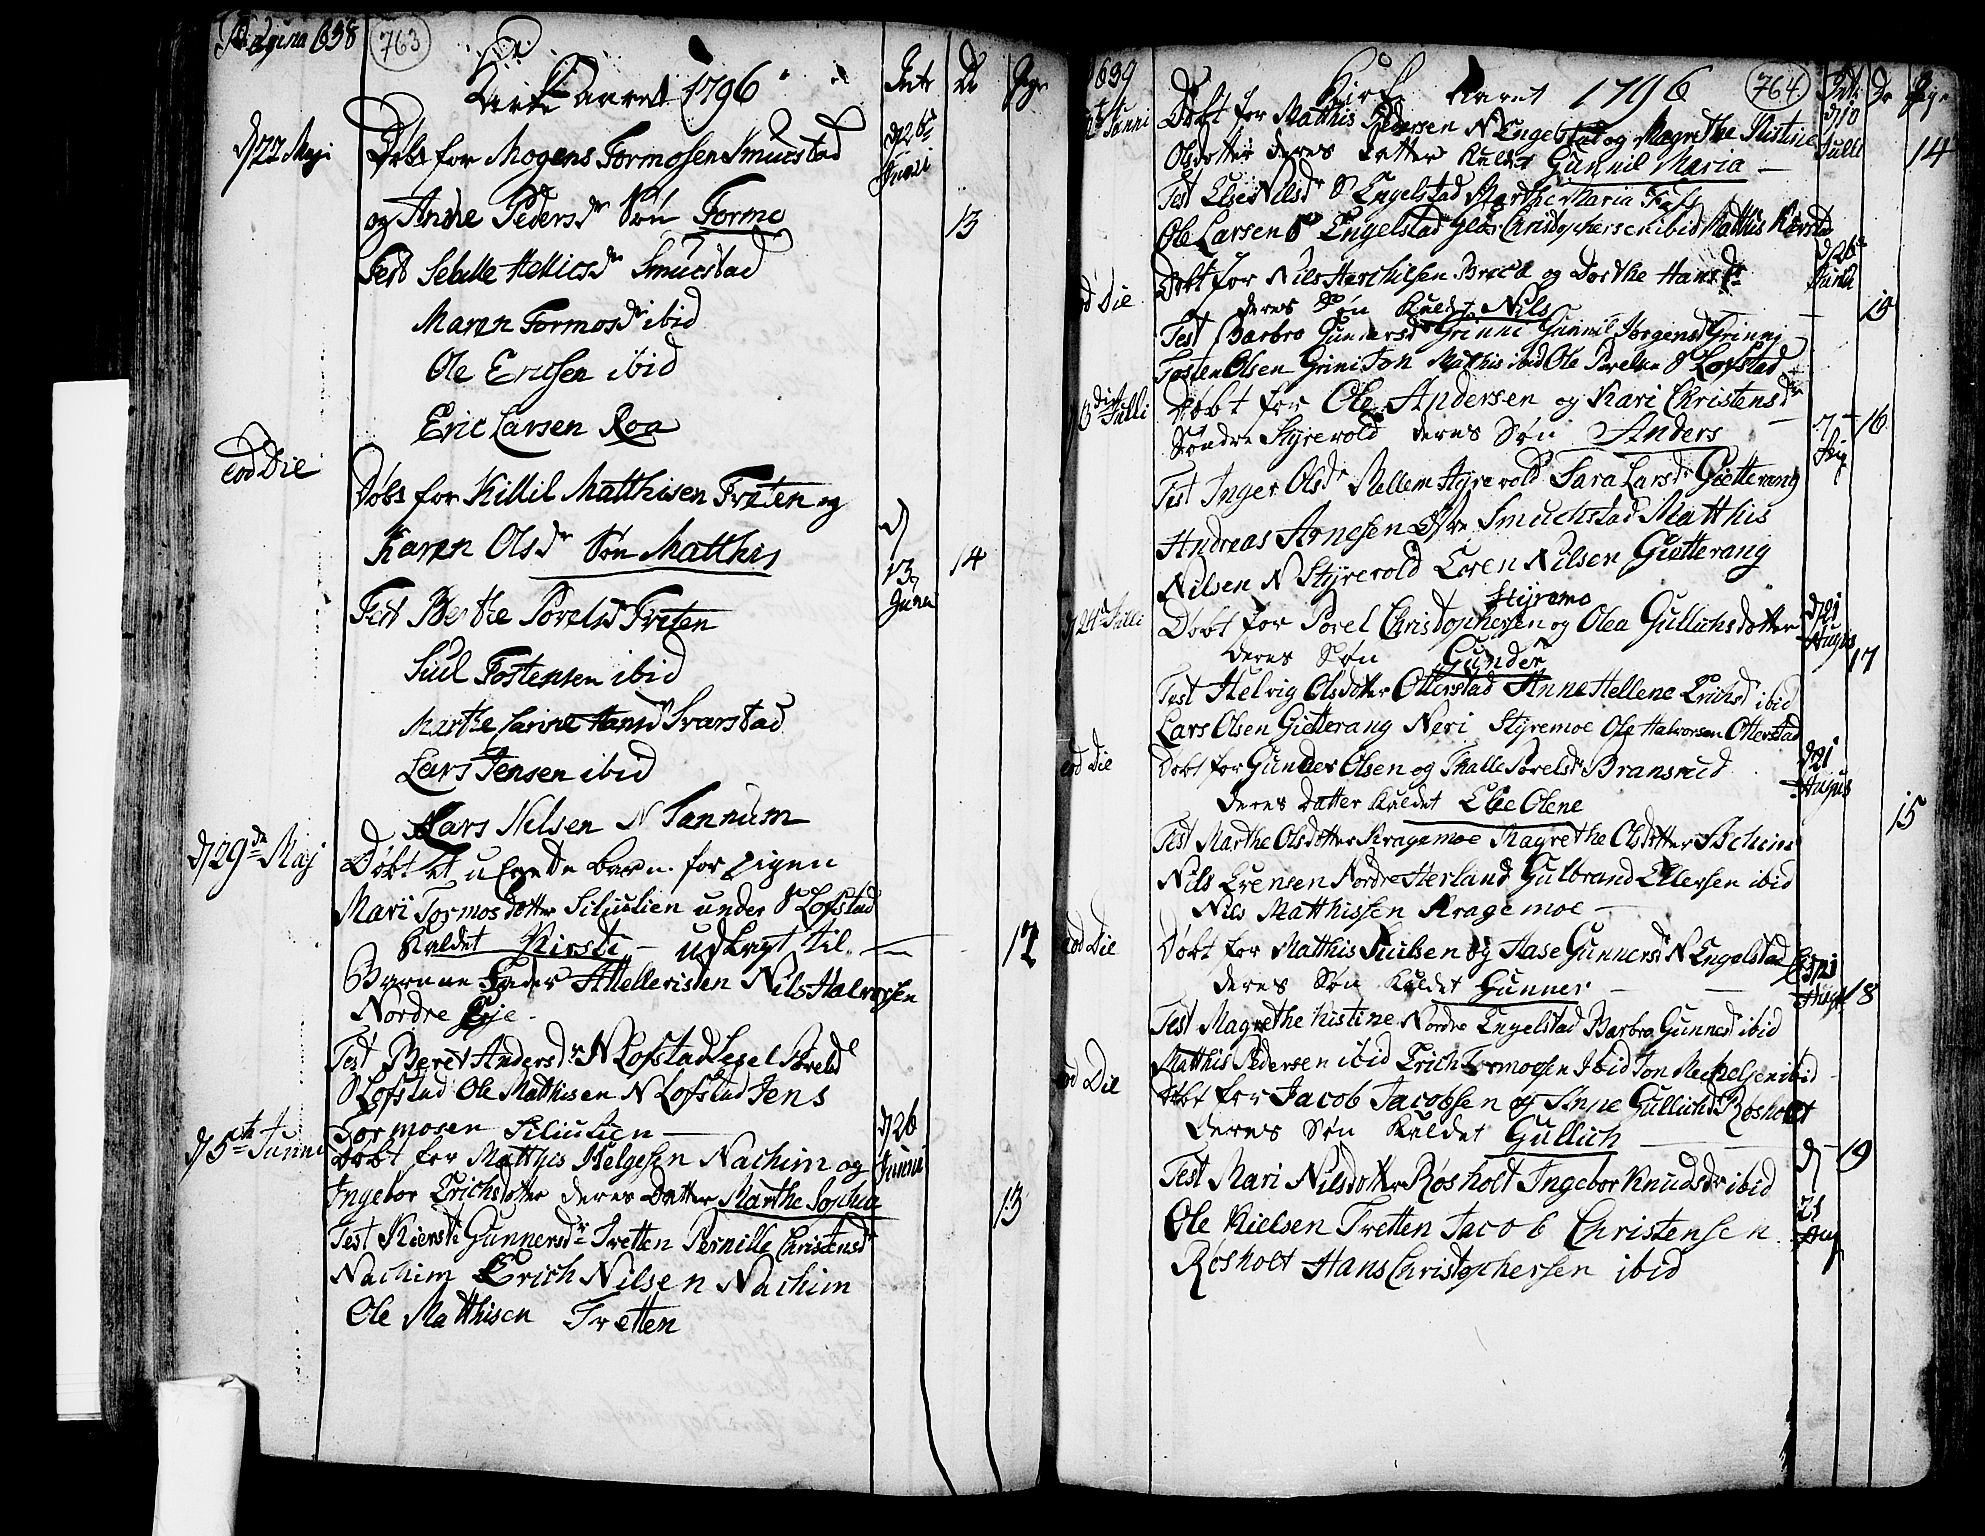 Pagina 638 763
Kirke Aaret 1796 Intr Dr Pigr
d 22 Maji Døbt for Mogens Tormosen Smucstad d 26 Junii
og Anne Pedersdr Søn Tormo 13
Test Sebille Hellicsdr Smucstad
Maren Tormosdr ibid
Ole Ericsen ibid
Eric Larsen Roa
eod Die Døbt for Killil Matthisen Træten og d
Karen Olsdr Søn Matthis 13 Junii 14
Test Berthe Porelsdr Træten
Siul Tostensen ibid
Marthe Carine Hansdr Svarstad
Lars Jensen ibid
Lars Nilsen N Tannum
d 29de Maj Døbt et uEgte barn for pigen
Mari Tormosdotter Siliulien under S Lofstad
Kaldet Kirsti - udLagt til 12
Barnne Fader Attelleristen Nils Halvorsen
Nordre Eie
Test Beret Andersdr N Lofstad Sesel Poreldr
S Lofstad Ole Mathisen N Lofstad Jens
Tormosen Siliulien
d 5te Junni Døbt for Matthis Helgesen Nachim og d 26 Junni
Ingebor Erichsdotter deres Datter Marthe Sophia 13
Test Kiersti Gunnersdr Tretten Pernille Christensdr
Nachim Erich Nilsen Nachim
Ole Matthisen Tretten
639 Kirke Aaret 1796 764 Intr Dr Pige
Junni Døbt for Matthis Pedersen N Engelstad og Magrethe Kistine d 10 Julli
Olsdotter deres Datter Kaldet Gunnil Maria 14
Test Else Nilsdr S Engelstad Marthe Maria
Ole Larsen S Engelstad Christophersen ibid Matthis
eod Die Døbt for Nils Herchilsen Brecke og Dorthe Hansdr d 26 Junii
deres Søn Kaldet Nils 15
Test Barbro Gunnersdr Grinni Gunnil Jorgensdr Grinni
Tosten Olsen Grini Jon Mathis ibid Ole Porelsen S Lofstad
Julli Døbt for Ole Andersen og Kari Christensdr
Søndre Styrevold deres Søn Anders 7 16
Test Inger Olsdr Mellem Styrevold Sara Larsdr Gietterang
Andreas Arnesen Østre Smuchstad Matthis
Nilsen N Styrevold Loren Nilsen Gietterang
Styremo
d 24 Julli Døbt for Porel Christophersen og Olea Gullichsdotter d 21 August
deres Søn Gunder 17
Test Helvig Olsdotter Otterstad Anne Hellene Erichsdr ibid
Lars Olsen Gietterang Neri Styremoe Ole Halvorsen Otterstad
eod Die Døbt for Gunder Olsen og Thalle Porelsdr Bransrud d 21 August
deres Datter Kaldet Else Olene 15
Test Marthe Olsdotter Kragemoe Magrethe Olsdotter Bchim
Nils Evensen Nordre Herland Gulbrand Ellersen ibid
Nils Matthissen Kragemoe
eod Die Døbt for Matthis Siulsen og Aase Gunnersdr N Engelstad d 21
deres Søn Kaldet Gunner August 18
Test Magrethe Kistine Nordre Engelstad Barbro Gunnesdr ibid
Matthis Pedersen ibid Erich Tormoesen Ibid Jon Mechelsen ibid
eod Die Døbt for Jacob Jacobsen og Anne Gullichsdr Røsholt
deres Søn Kaldet Gullich d 19
Test Mari Nilsdotter Røsholt Ingebor Knudsdr ibid 21
Ole Kielsen Tretten Jacob Christensen Aug
Røsholt Hans Christophersen ibid